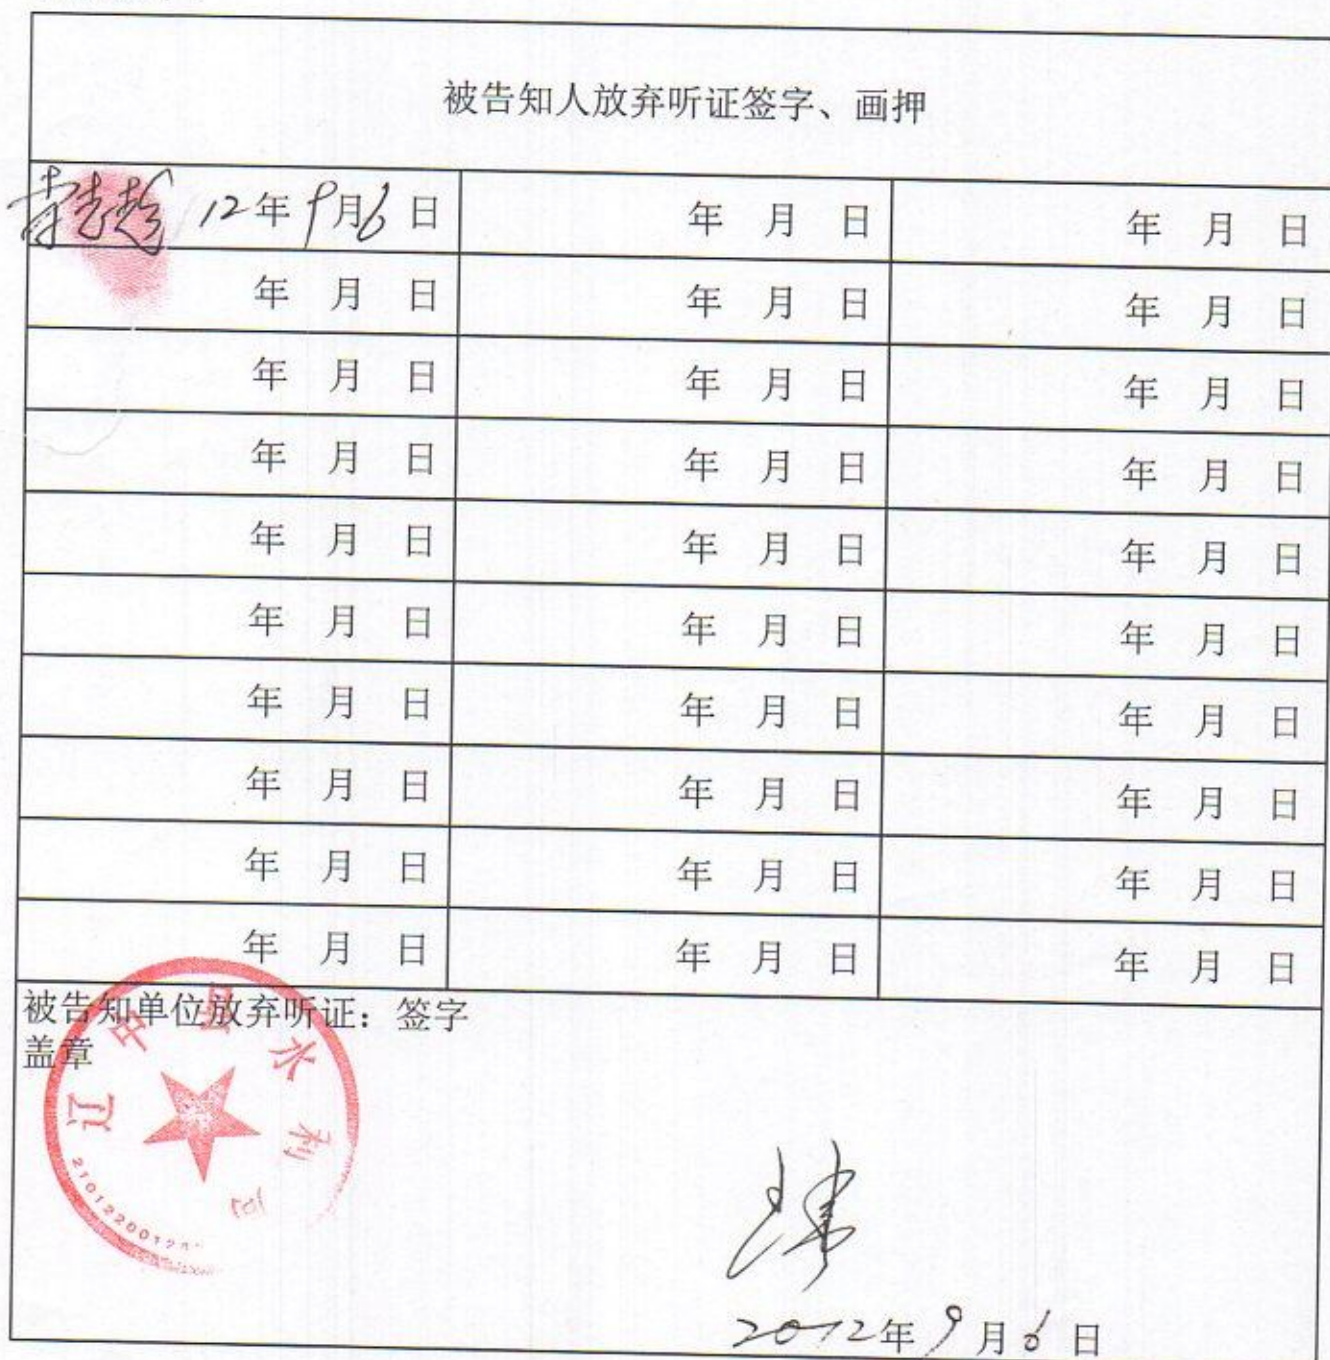 被告知人放弃听证签字、画押
12年9月6日 年 月 日 年 月 日
年 月 日 年 月 日 年 月 日
年 月 日 年 月 日 年 月 日
年 月 日 年 月 日 年 月 日
年 月 日 年 月 日 年 月 日
年 月 日 年 月 日 年 月 日
年 月 日 年 月 日 年 月 日
年 月 日 年 月 日 年 月 日
年 月 日 年 月 日 年 月 日
年 月 日 年 月 日 年 月 日
被告知单位放弃听证：签字
盖章
辽中县水利局
2012年9月6日